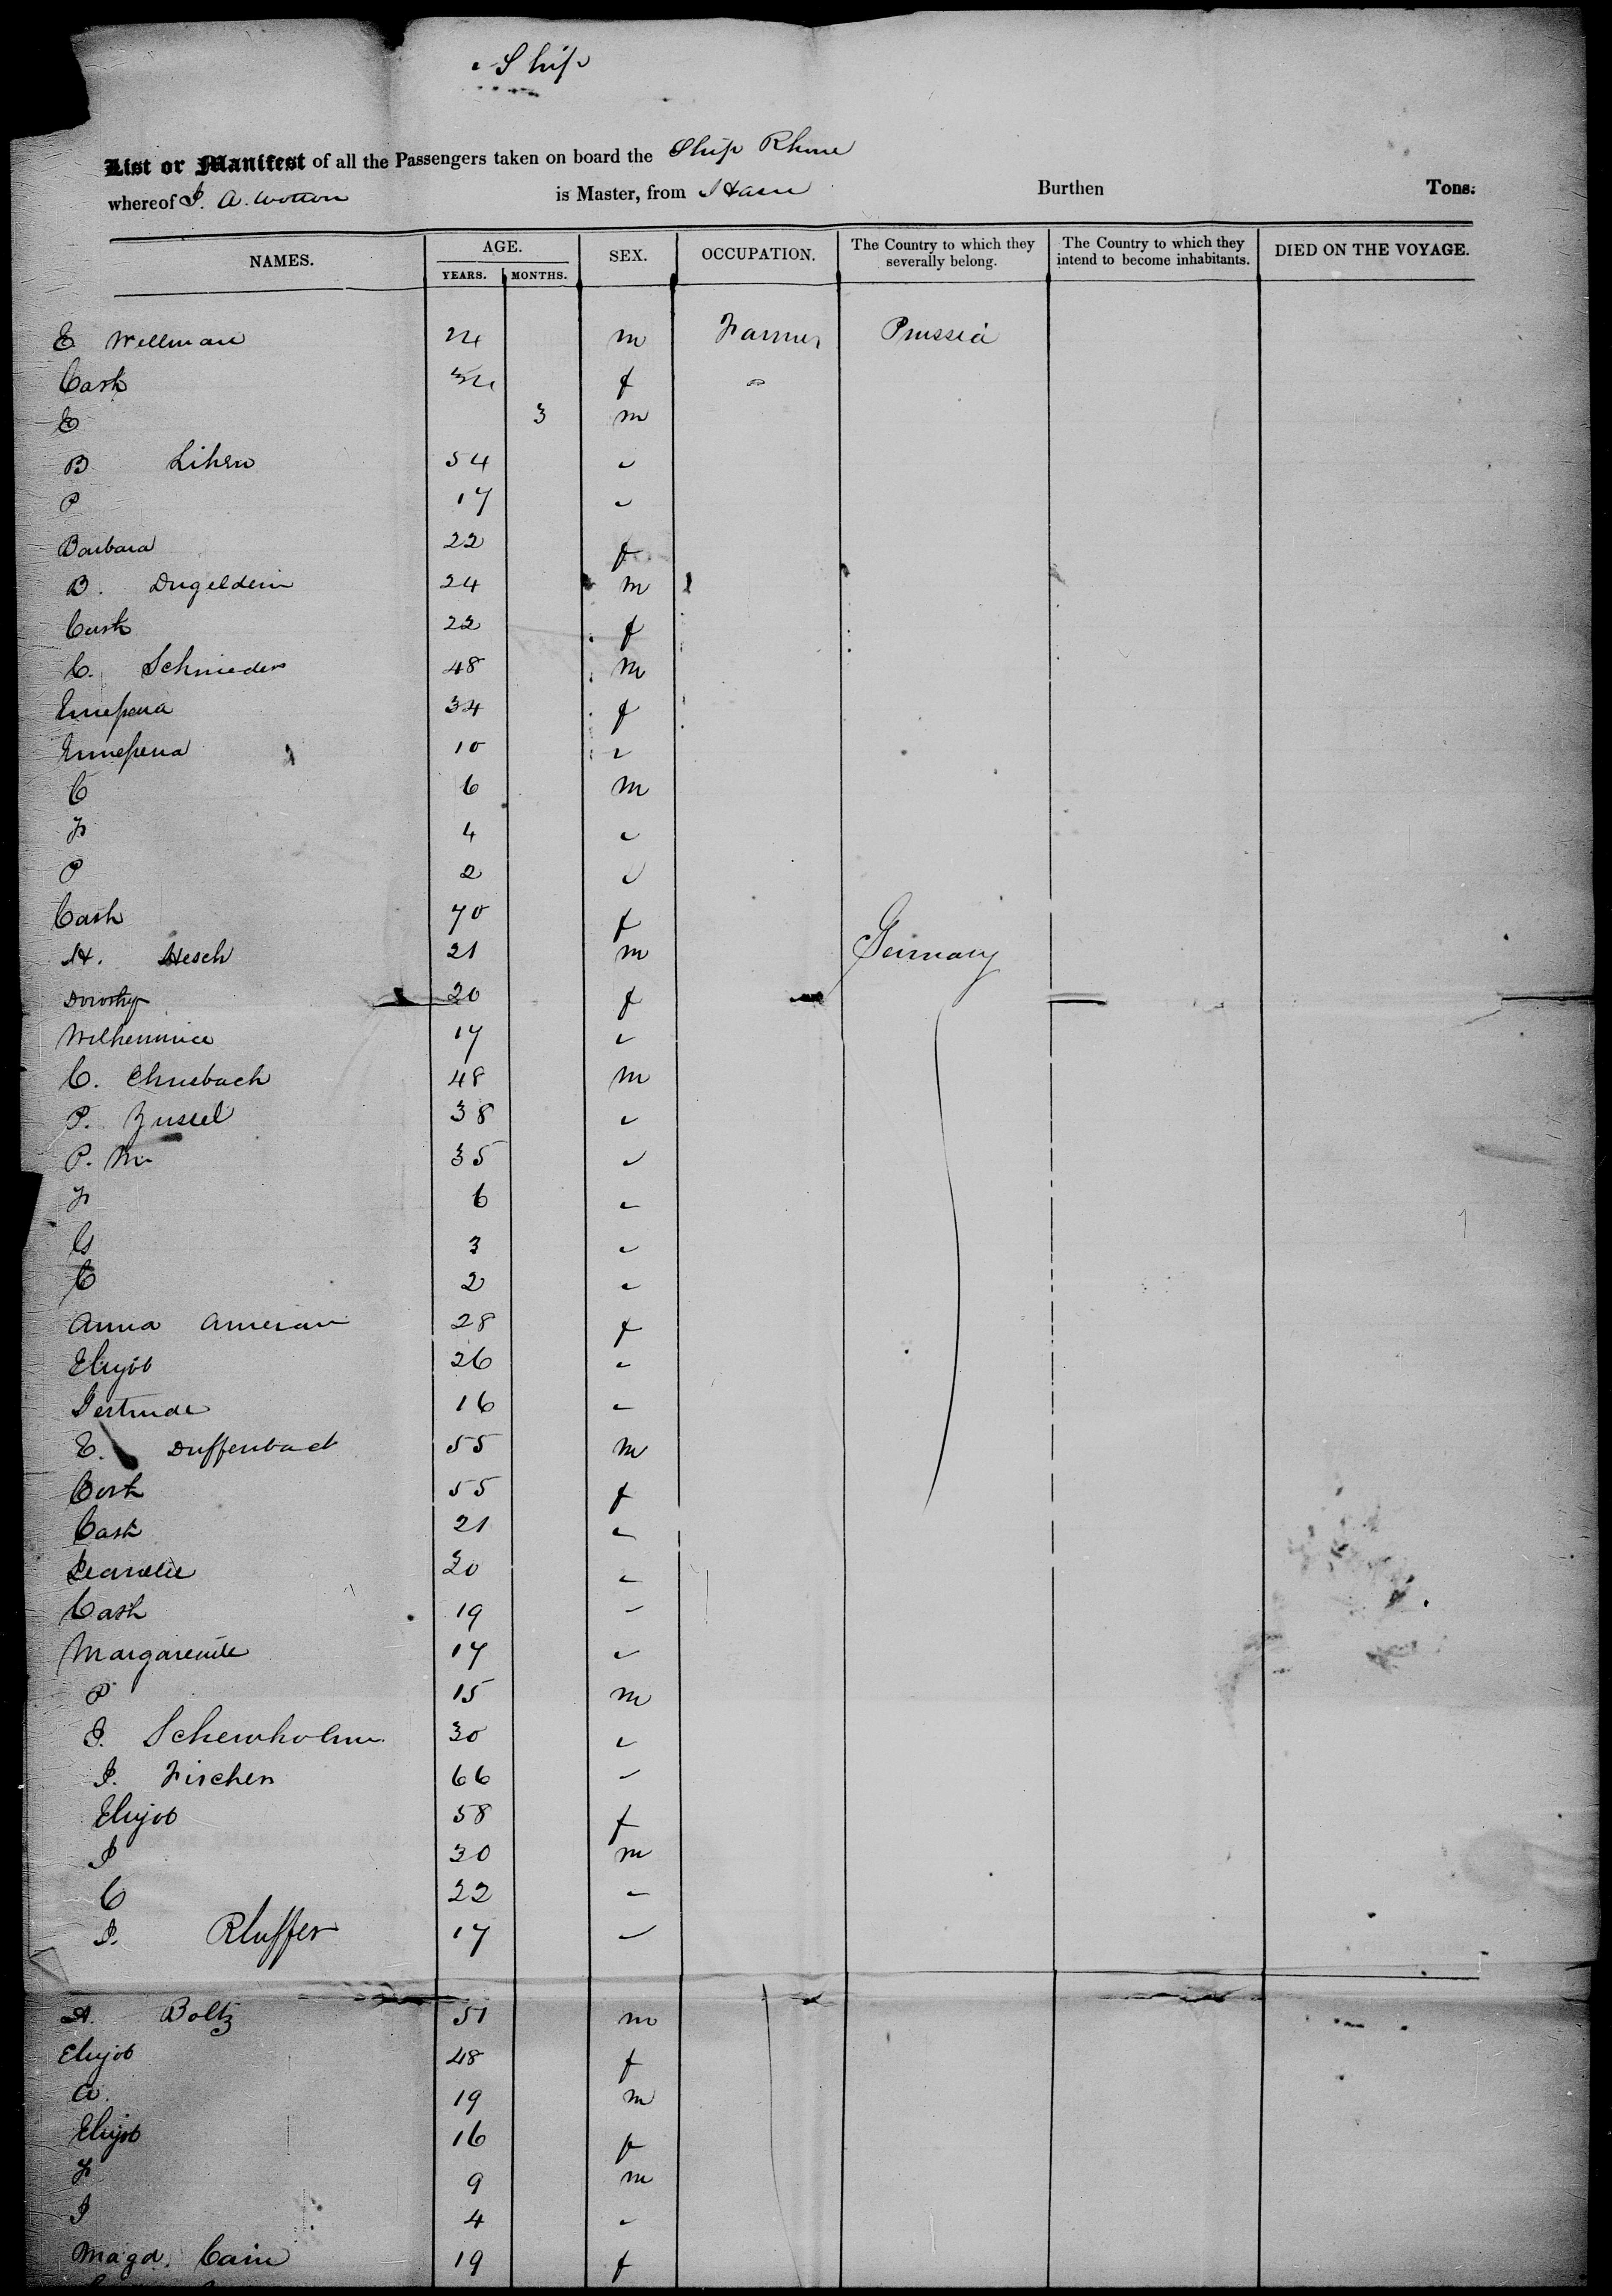 Ship
List or Manifest of all the Passengers taken on board the Ship Rhine
whereof J. A. Wotton is Master, from Havre Burthen Tons.
NAMES. AGE. SEX. OCCUPATION. The Country to which they severally belong. The Country to which they intend to become inhabitants. DIED ON THE VOYAGE.
YEARS. MONTHS.
E Wellman 24 m Farmer Prussia
Cath f "
E 3 m
B Liher 54 "
P 17 "
Barbara 22 f
B. Dugeldein 24 m
Cath 22 f
C. Schnieder 48 m
34 f
10 "
C 6 m
F 4 "
P 2 "
Cath 70 f
H. Hesch 21 m Germany
Dorothy 20 f
Wilhermince 17 "
C. Chrisbach 48 m
P. Zussel 38 "
P. 35 "
F 6 "
3 "
C 2 "
Anna Ameran 28 f
Elizjbt 26 "
Gertrude 16 "
C. Duffenbach 55 m
Cath 55 f
Cath 21 "
20 "
Cath 19 "
17 "
P 15 m
J. Scherwholm 30 "
J. Fischer 66 "
Elizjbt 58 f
J 30 m
C 22 "
J. Rluffer 17 "
A. Boltz 51 m
Elizjbt 48 f
A. 19 m
Elizjbt 16 f
F 9 m
J 4 "
Magd. Cain 19 f